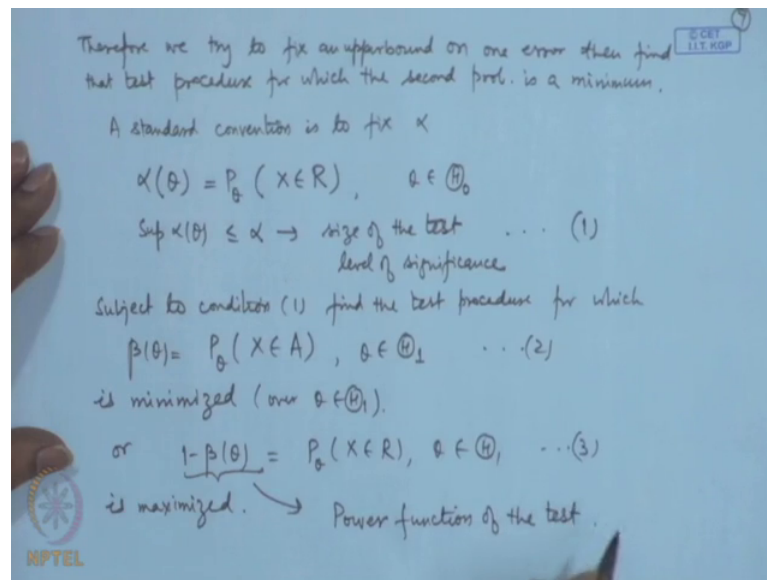 9
© CET
I.I.T. KGP
Therefore we try to fix an upperbound on one error then find
that test procedure for which the second prob. is a minimum.
A standard convention is to fix α
α(θ) = P_θ (X ∈ R), θ ∈ Ⓗ₀
Sup α(θ) ≤ α → size of the test ... (1)
level of significance
Subject to condition (1) find the test procedure for which
β(θ) = P_θ (X ∈ A), θ ∈ Ⓗ₁ ... (2)
is minimized (over θ ∈ Ⓗ₁).
or 1-β(θ) = P_θ (X ∈ R), θ ∈ Ⓗ₁ ... (3)
is maximized. → Power function of the test.
NPTEL